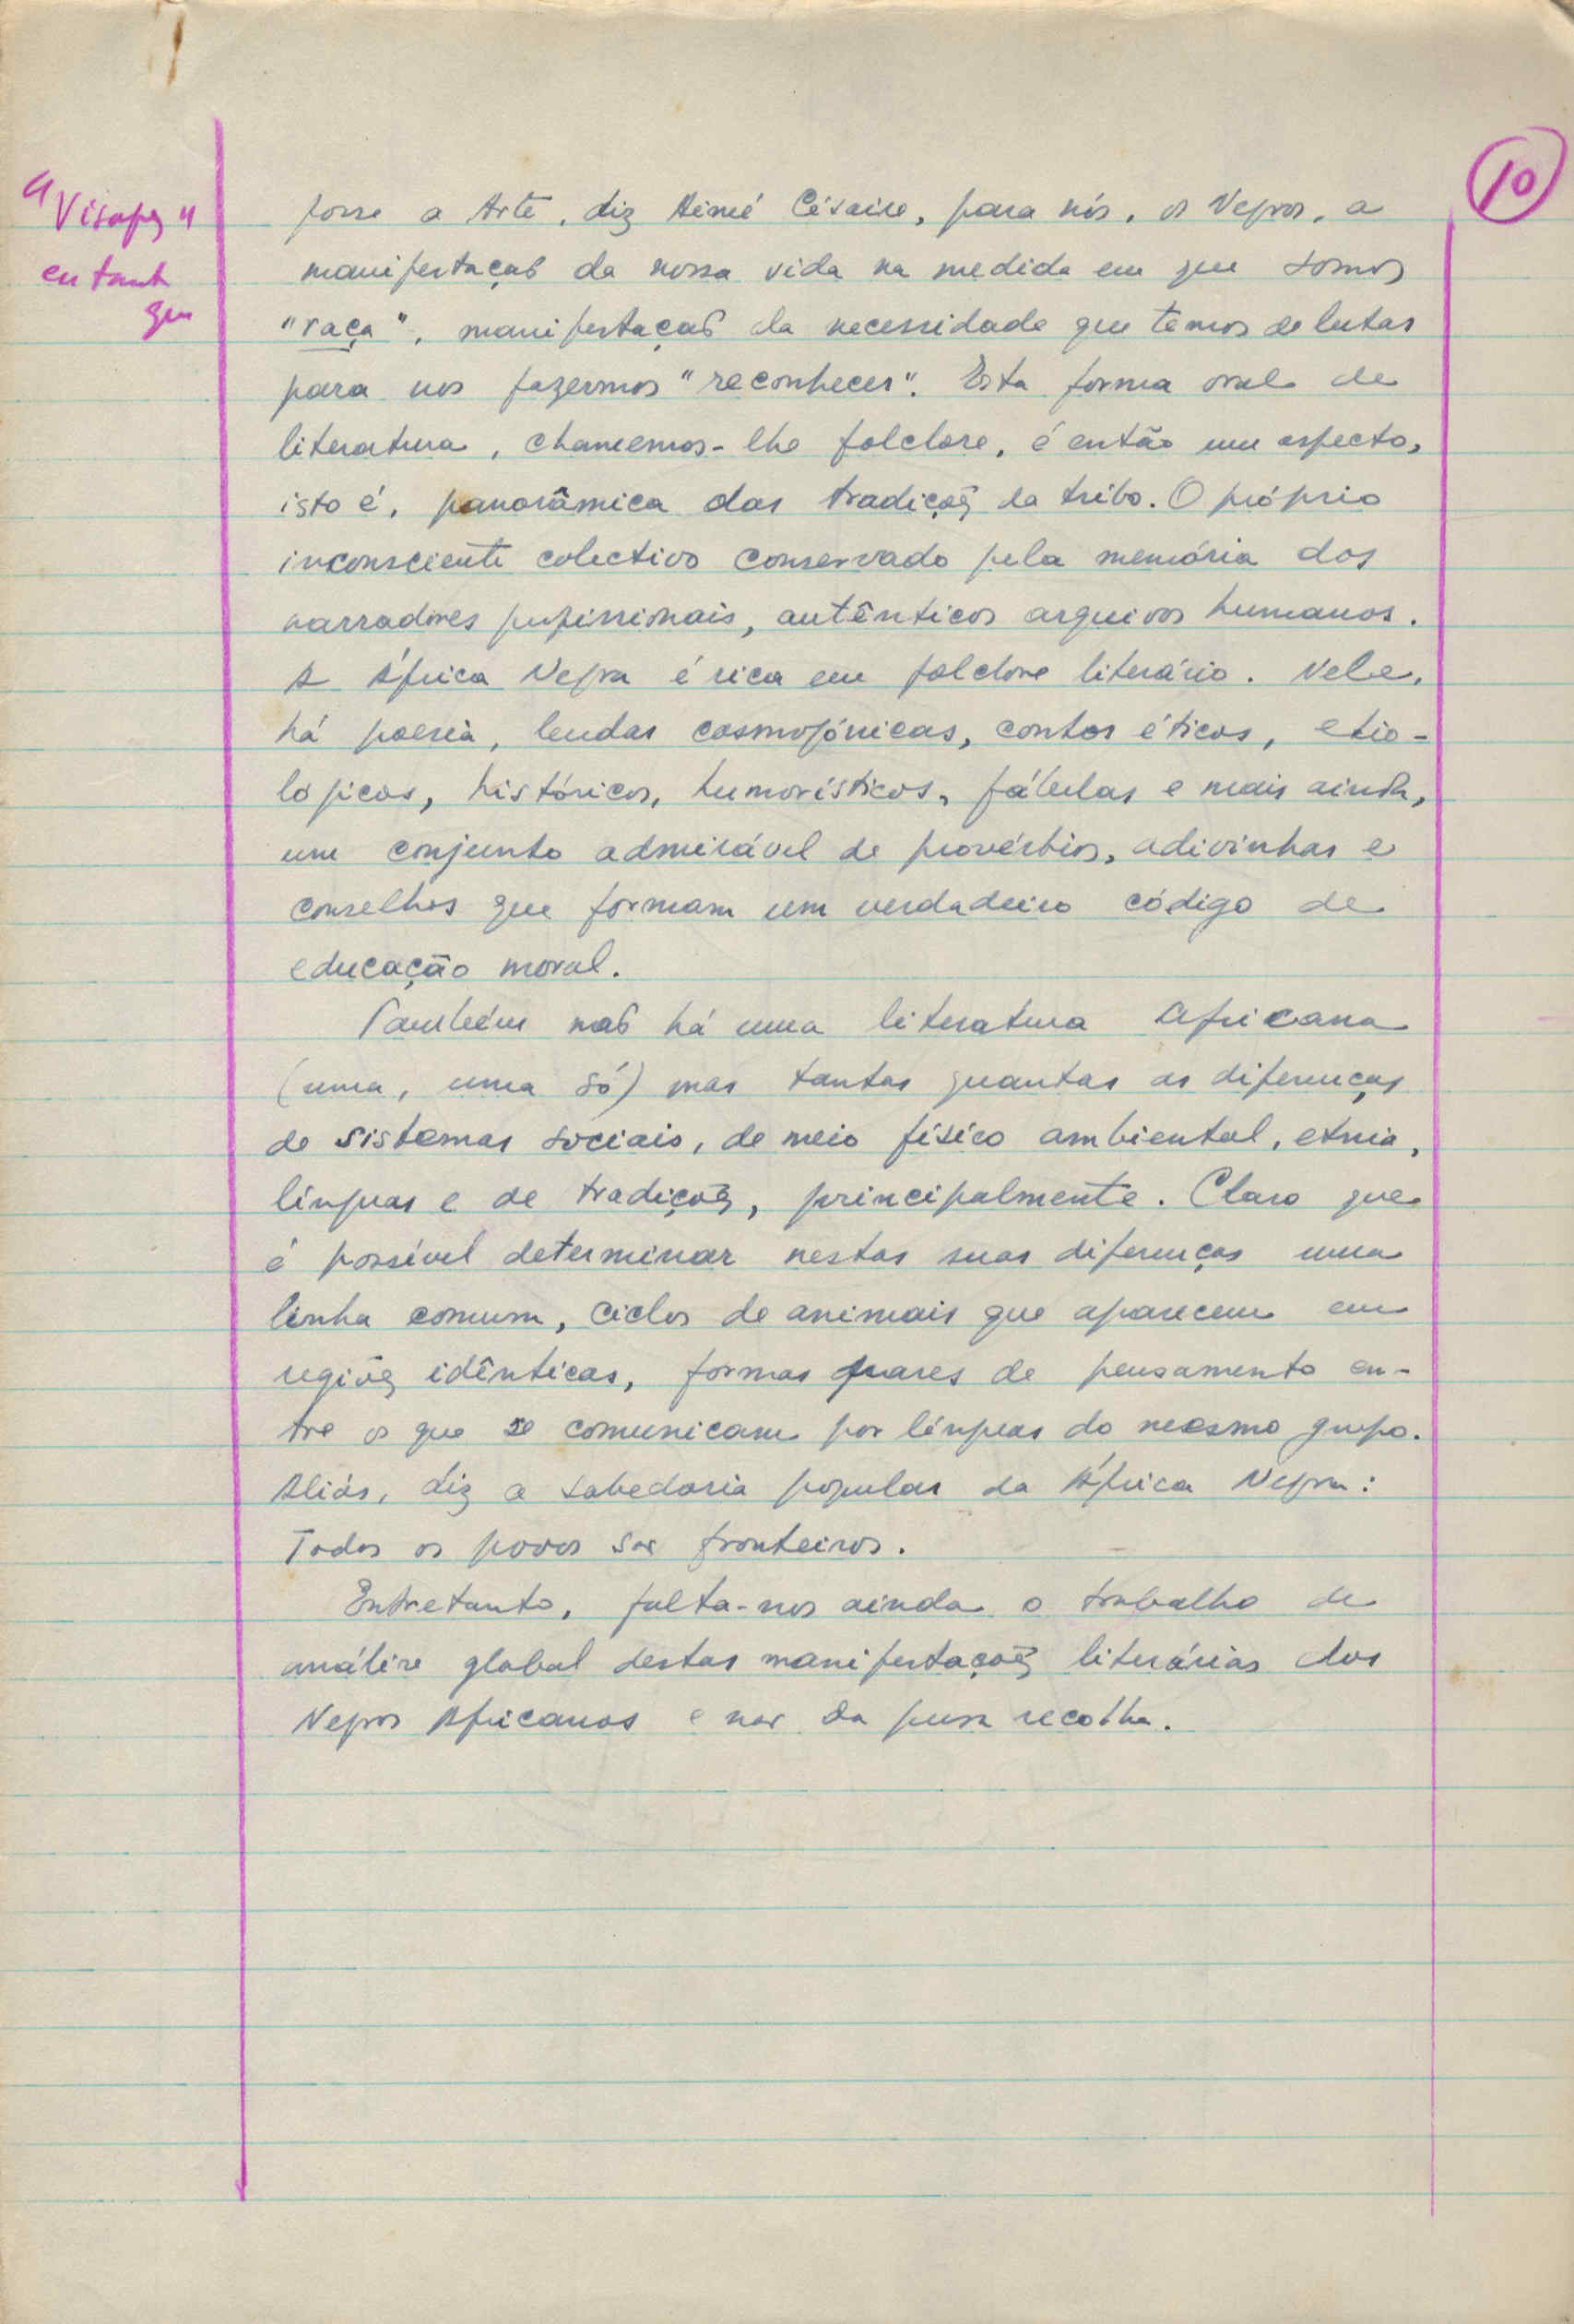 10
fosse a Arte, diz Aimé Césaire, para nós, os Negros, a
manifestação da nossa vida na medida em que somos
"raça", manifestação da necessidade que temos de lutar
para nos fazermos "reconhecer". Esta forma oral de
literatura, chamemos-lhe folclore, é então um aspecto,
isto é, panorâmica das tradições da tribo. O próprio
inconsciente colectivo conservado pela memória dos
narradores profissionais, autênticos arquivos humanos.
A África Negra é rica em folclore literário. Nele,
há poesia, lendas cosmogónicas, contos éticos, etio-
lógicos, históricos, humorísticos, fábulas e mais ainda,
um conjunto admirável de provérbios, adivinhas e
conselhos que formam um verdadeiro código de
educação moral.
Também não há uma literatura africana
(uma, uma só) mas tantas quantas as diferenças
de sistemas sociais, de meio físico ambiental, etnia,
línguas e de tradições, principalmente. Claro que
é possível determinar nestas suas diferenças uma
linha comum, ciclos de animais que aparecem em
regiões idênticas, formas pares de pensamento en-
tre os que se comunicam por línguas do mesmo grupo.
Aliás, diz a sabedoria popular da África Negra:
Todos os povos são fronteiros.
Entretanto, falta-nos ainda o trabalho de
análise global destas manifestações literárias dos
Negros Africanos e não da pura recolha.